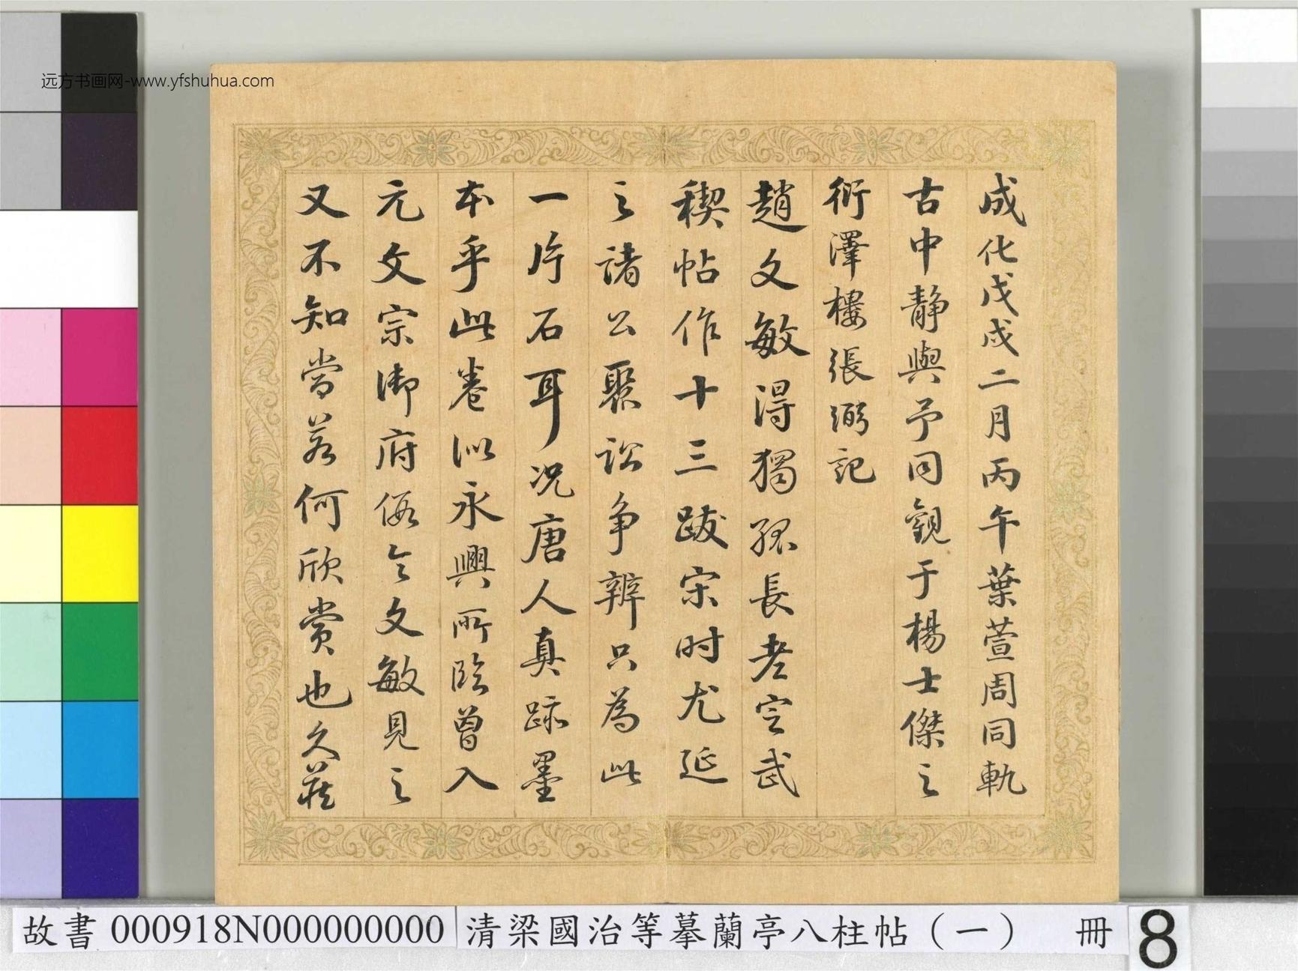 远方书画网-www.yfshuhua.com
成化戊戌二月丙午葉萱周同軌
古中静與予同觀于楊士傑之
衍澤樓張弼記
趙文敏得獨孤長老定武
稧帖作十三跋宋时尤延
之諸公聚訟争辨只為此
一片石耳况唐人真跡墨
本乎此卷似永興所臨曾入
元文宗御府假令文敏見之
又不知當若何欣賞也久藏
故書 000918N000000000
清梁國治等摹蘭亭八柱帖（一） 冊
8